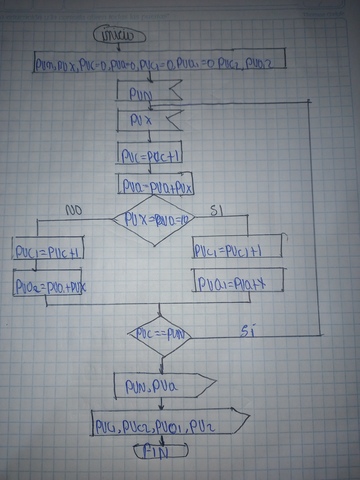 inicio
PUN, PUX, PUC=0, PUA=0, PUC1=0, PUA1=0 PUC2, PUA2
PUN
PUX
PUC=PUC+1
PUA=PUA+PUX
NO
SI
PUC1=PUC+1
PUC1=PUC1+1
PUA2=PUA+PUX
PUA1=PUA+X
PUC==PUN
Si
PUN, PUA
PUC1, PUC2, PUA1, PU2
FIN